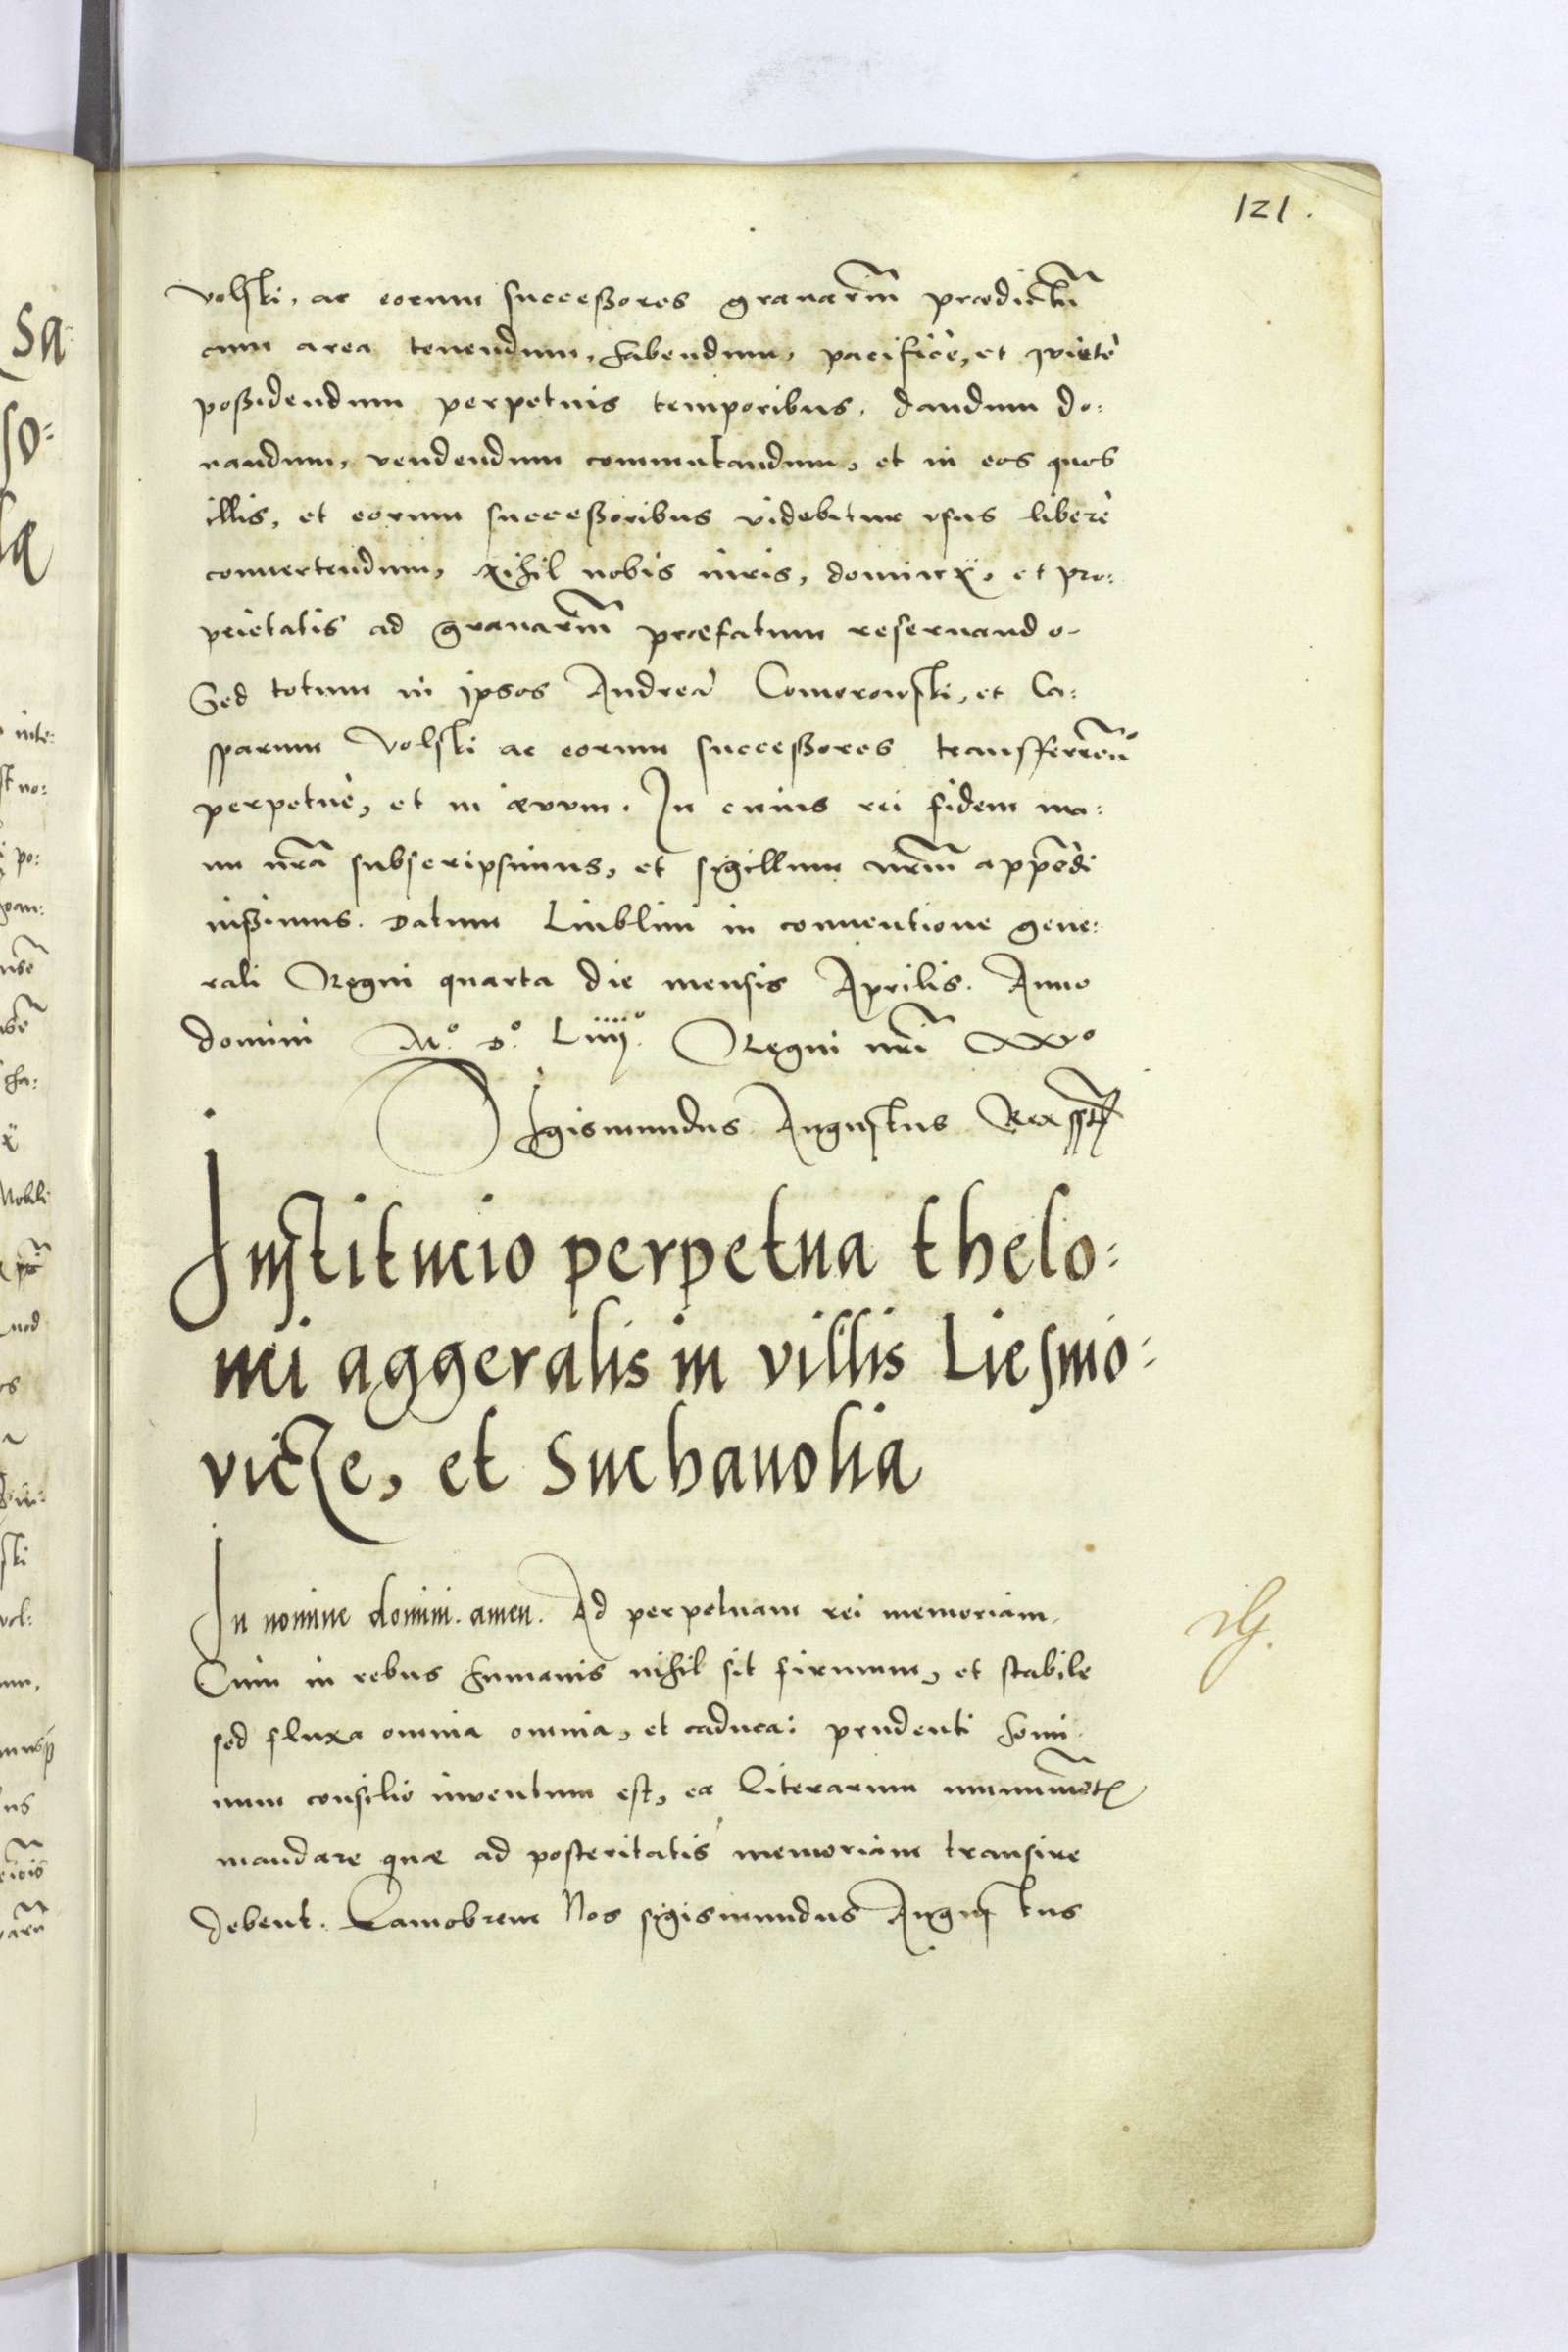 121.
volski, ac eorum successores granariũm prædictũ
cum area tenendum, habendum, pacificè, et quietè
possidendum perpetuis temporibus, dandum do:
nandum, vendendum commutandum, et in eos quos
illis, et eorum successoribus videbitur usus liberè
convertendum, Nihil nobis iuris, dominii, et pro:
prietatis ad granariũm præfatum reservando.
Sed totum in ipsos Andreã Comorowski, et Ca:
sparum Volski ac eorum successores transfferrendo
perpetuè, et in ævum. In cuius rei fidem ma:
nu nrã subscripsimus, et sigillum nrũm appẽdi
iussimus. Datum Liublini in conventione gene:
rali Regni quarta die mensis Aprilis. Anno
domini Mº. Dº. Liiijº. Regni nrĩ xxvº
Sigismundus Augustus Rex sst
Institucio perpetua thelo:
nei aggeralis in villis Liesnio:
vicze, et Suchauolia
In nomine domini. amen. Ad perpetuam rei memoriam.
Cum in rebus humanis nihil sit firmum, et stabile
sed fluxa omnia omnia, et caduca: prudenti homi
num consilio inventum est, ea Literarum munimẽtis
mandare quæ ad posteritatis memoriam transire
debent. Quamobrem Nos sigismundus Augustus